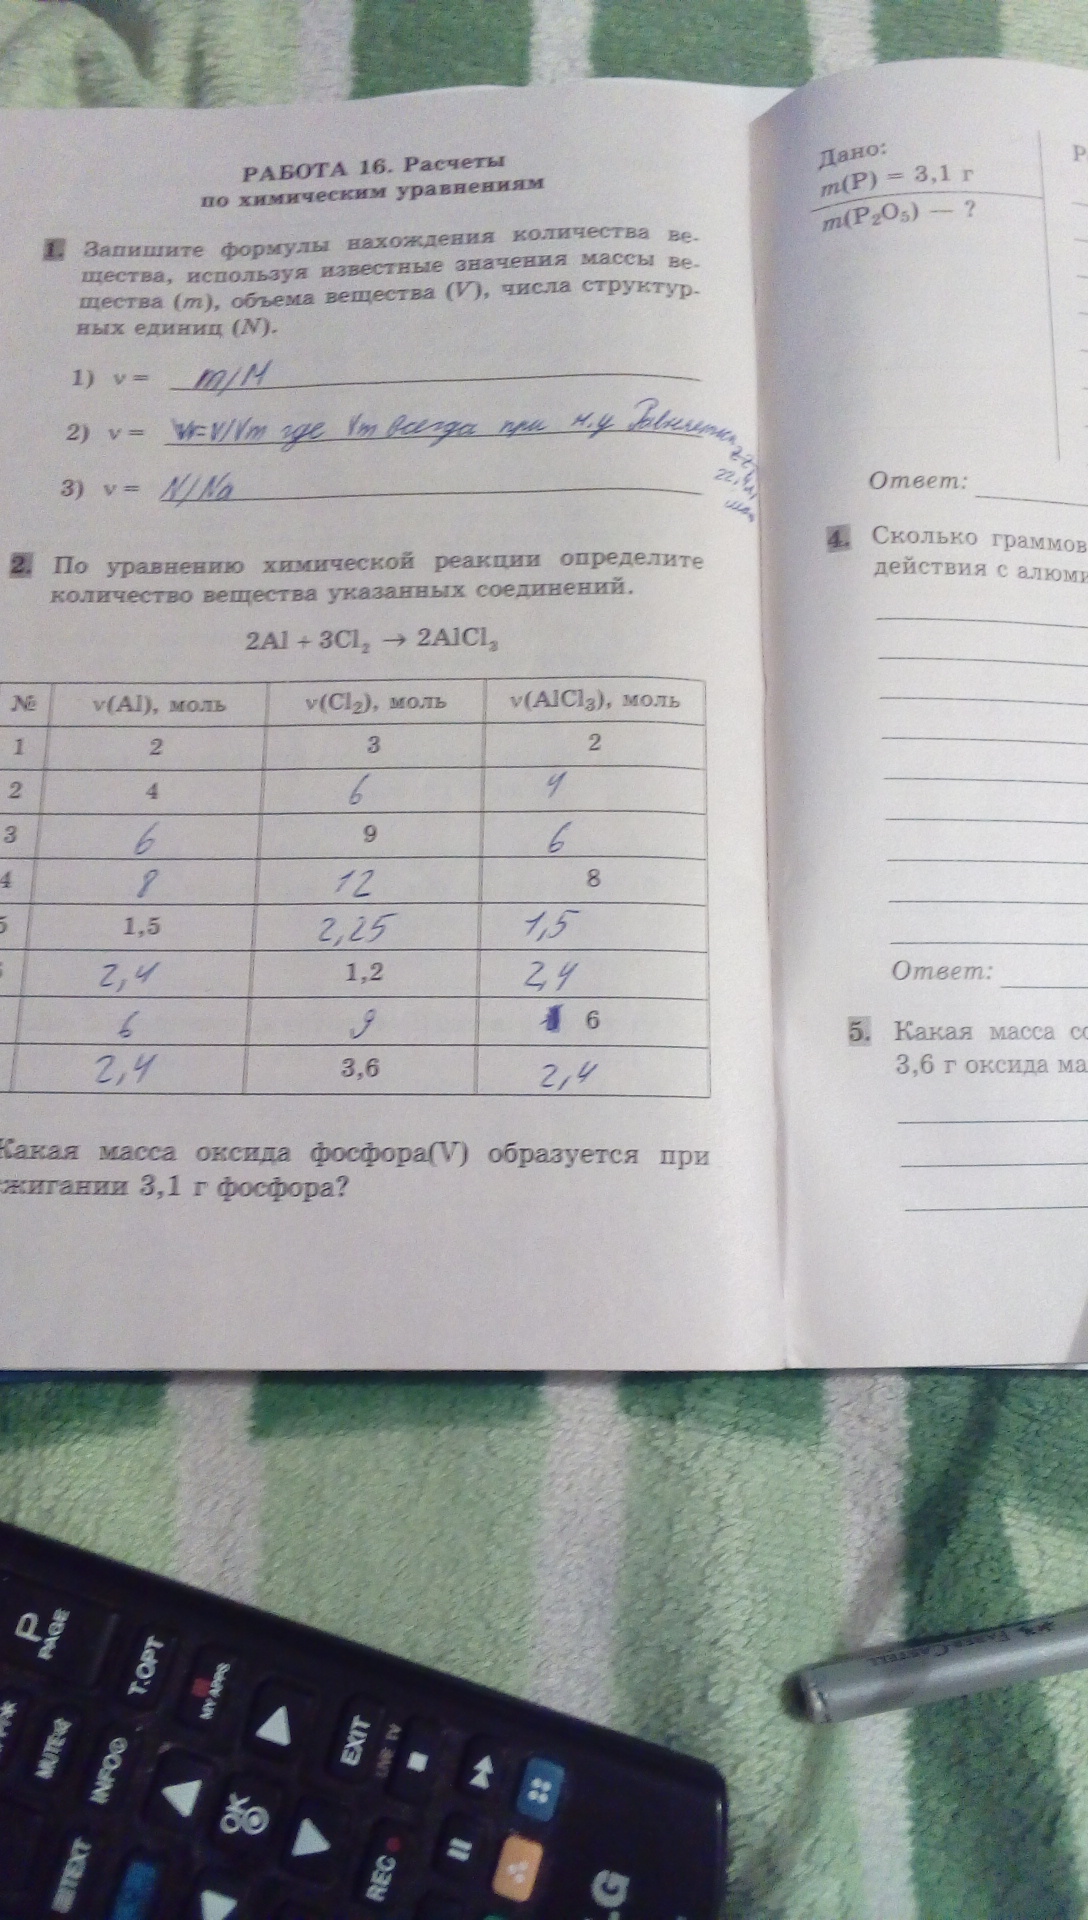 РАБОТА 16. Расчеты
по химическим уравнениям
1. Запишите формулы нахождения количества ве-
щества, используя известные значения массы ве-
щества (m), объема вещества (V), числа структур-
ных единиц (N).
1) ν = m/M
2) ν = V/Vm где Vm всегда при н.у Равняется
22,4л/
3) ν = N/Na
2. По уравнению химической реакции определите
количество вещества указанных соединений.
2Al + 3Cl₂ → 2AlCl₃
№ ν(Al), моль ν(Cl₂), моль ν(AlCl₃), моль
1 2 3 2
2 4 6 4
3 6 9 6
4 8 12 8
5 1,5 2,25 1,5
2,4 1,2 2,4
6 9 6
2,4 3,6 2,4
Какая масса оксида фосфора(V) образуется при
сжигании 3,1 г фосфора?
Дано:
m(P) = 3,1 г
m(P₂O₅) — ?
Р
Ответ:
4. Сколько граммов
действия с алюми
Ответ:
5. Какая масса со
3,6 г оксида ма
P
PAGE
T.OPT
MY APPS
MUTE
INFO
EXIT
LIVE TV
OK
TEXT
REC
LG
FABER-CASTELL